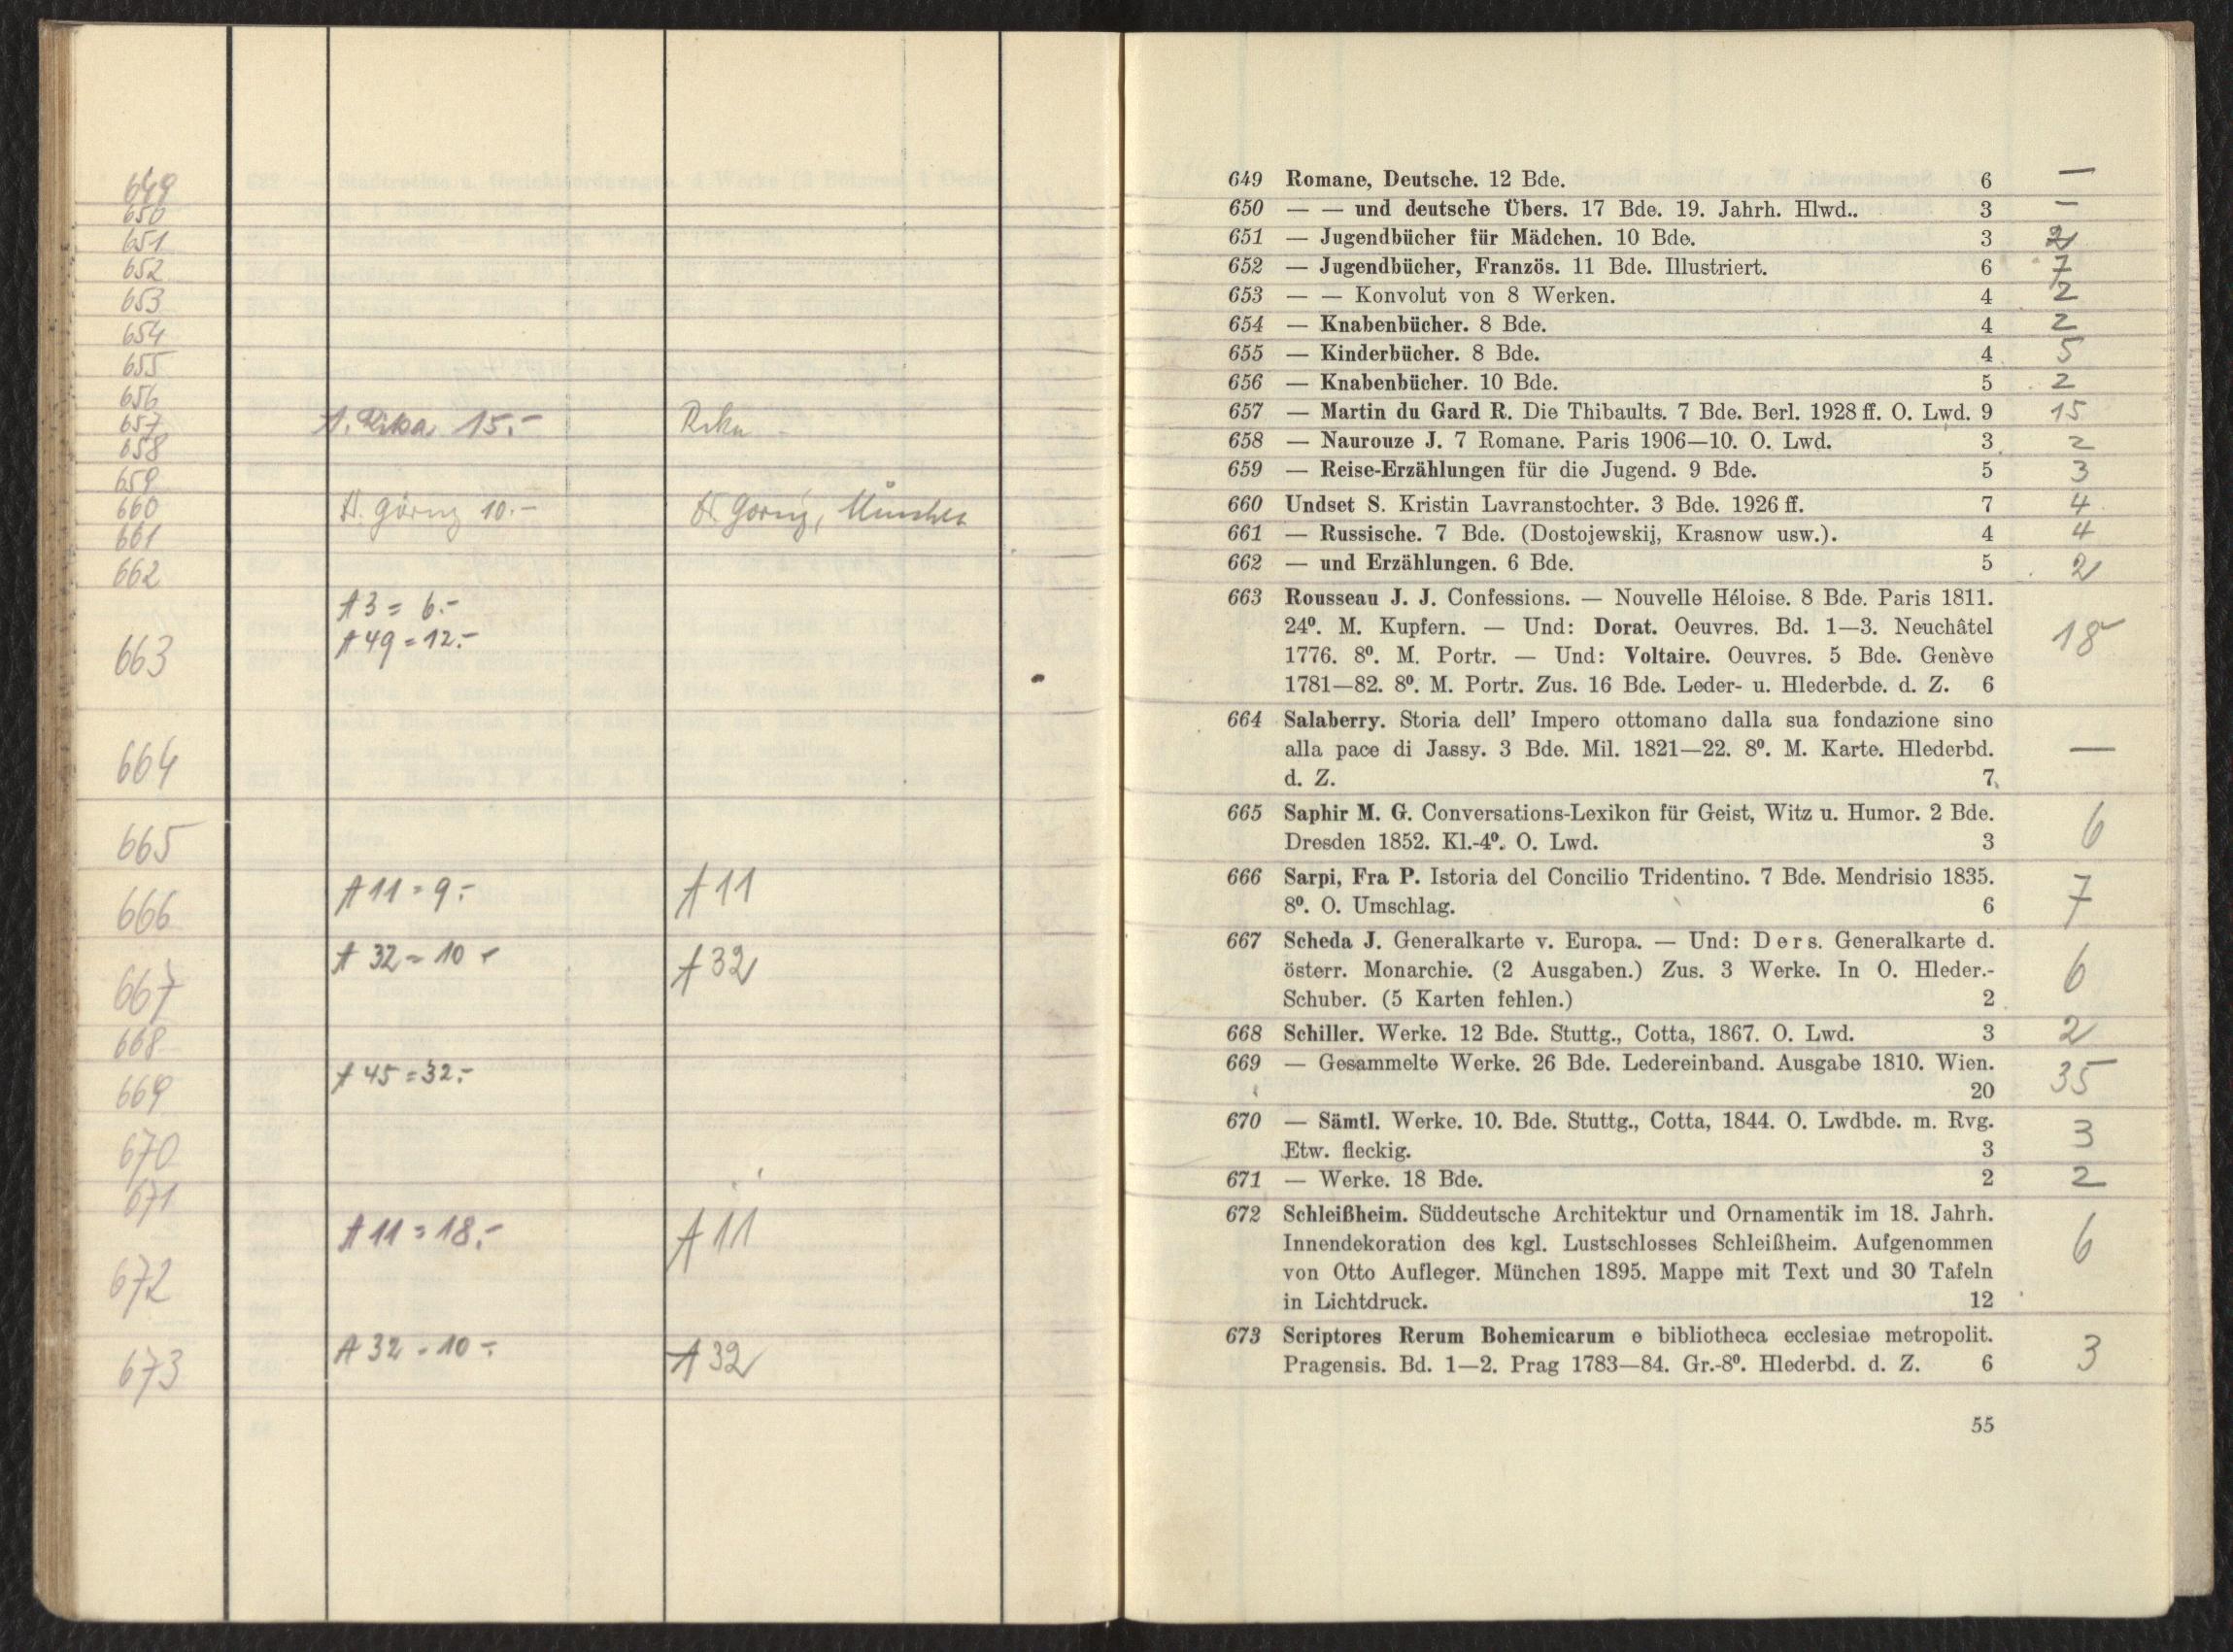 649
650
651
652
653
654
655
656
657 A. Rika 15.-
658
659
660 A. Görng 10.-
661
662
A 3 = 6.-
A 49 = 12.-
663
664
665
666 A 11 = 9.- A 11
667 A 32 = 10.- A 32
668
669 A 45 = 32.-
670
671
672 A 11 = 18.- A 11
673 A 32 = 10.- A 32
649 Romane, Deutsche. 12 Bde. 6 —
650 — — und deutsche Übers. 17 Bde. 19. Jahrh. Hlwd.. 3 —
651 — Jugendbücher für Mädchen. 10 Bde. 3 2
652 — Jugendbücher, Französ. 11 Bde. Illustriert. 6 7
653 — — Konvolut von 8 Werken. 4 2
654 — Knabenbücher. 8 Bde. 4 2
655 — Kinderbücher. 8 Bde. 4 5
656 — Knabenbücher. 10 Bde. 5 2
657 — Martin du Gard R. Die Thibaults. 7 Bde. Berl. 1928 ff. O. Lwd. 9 15
658 — Naurouze J. 7 Romane. Paris 1906—10. O. Lwd. 3 2
659 — Reise-Erzählungen für die Jugend. 9 Bde. 5 3
660 Undset S. Kristin Lavranstochter. 3 Bde. 1926 ff. 7 4
661 — Russische. 7 Bde. (Dostojewskij, Krasnow usw.). 4 4
662 — und Erzählungen. 6 Bde. 5 2
663 Rousseau J. J. Confessions. — Nouvelle Héloise. 8 Bde. Paris 1811.
24⁰. M. Kupfern. — Und: Dorat. Oeuvres. Bd. 1—3. Neuchâtel 18
1776. 8⁰. M. Portr. — Und: Voltaire. Oeuvres. 5 Bde. Genève
1781—82. 8⁰. M. Portr. Zus. 16 Bde. Leder- u. Hlederbde. d. Z. 6
664 Salaberry. Storia dell' Impero ottomano dalla sua fondazione sino
alla pace di Jassy. 3 Bde. Mil. 1821—22. 8⁰. M. Karte. Hlederbd. —
d. Z. 7
665 Saphir M. G. Conversations-Lexikon für Geist, Witz u. Humor. 2 Bde. 6
Dresden 1852. Kl.-4⁰. O. Lwd. 3
666 Sarpi, Fra P. Istoria del Concilio Tridentino. 7 Bde. Mendrisio 1835. 7
8⁰. O. Umschlag. 6
667 Scheda J. Generalkarte v. Europa. — Und: Ders. Generalkarte d.
österr. Monarchie. (2 Ausgaben.) Zus. 3 Werke. In O. Hleder.- 6
Schuber. (5 Karten fehlen.) 2
668 Schiller. Werke. 12 Bde. Stuttg., Cotta, 1867. O. Lwd. 3 2
669 — Gesammelte Werke. 26 Bde. Ledereinband. Ausgabe 1810. Wien.
20 35
670 — Sämtl. Werke. 10. Bde. Stuttg., Cotta, 1844. O. Lwdbde. m. Rvg. 3
Etw. fleckig. 3
671 — Werke. 18 Bde. 2 2
672 Schleißheim. Süddeutsche Architektur und Ornamentik im 18. Jahrh.
Innendekoration des kgl. Lustschlosses Schleißheim. Aufgenommen 6
von Otto Aufleger. München 1895. Mappe mit Text und 30 Tafeln
in Lichtdruck. 12
673 Scriptores Rerum Bohemicarum e bibliotheca ecclesiae metropolit.
Pragensis. Bd. 1—2. Prag 1783—84. Gr.-8⁰. Hlederbd. d. Z. 6 3
55